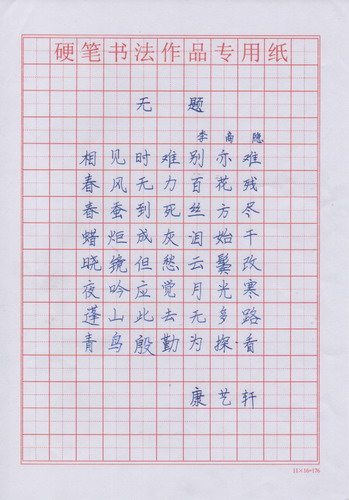 硬笔书法作品专用纸
无题
李商隐
相见时难别亦难
春风无力百花残
春蚕到死丝方尽
蜡炬成灰泪始干
晓镜但愁云鬓改
夜吟应觉月光寒
蓬山此去无多路
青鸟殷勤为探看
康艺轩
11×16=176